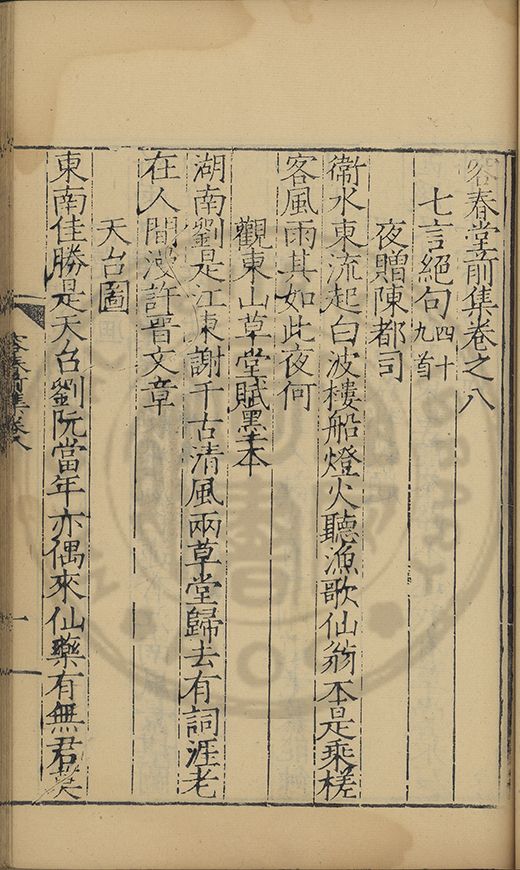 容春堂前集卷之八
七言絕句四十九首
夜贈陳都司
衞水東流起白波樓船燈火聽漁歌仙翁不是乘槎
客風雨其如此夜何
觀東山草堂賦墨本
湖南劉是江東謝千古清風兩草堂歸去有詞涯老
在人間漫許晋文章
天台圖
東南佳勝是天台劉阮當年亦偶來仙藥有無君莫
容春前集卷八
一